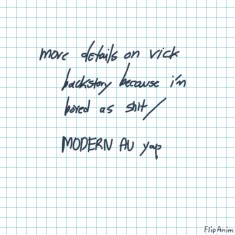 more details on vick
backstory because i'm
bored as shit/
MODERN AU yap
FlipAnim